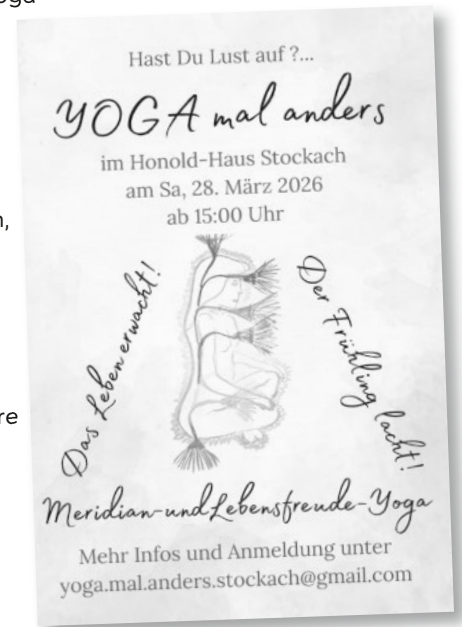 Hast Du Lust auf ?...
YOGA mal anders
im Honold-Haus Stockach
am Sa, 28. März 2026
ab 15:00 Uhr
Das Leben erwacht!
Der Frühling lacht!
Meridian-und Lebensfreude-Yoga
Mehr Infos und Anmeldung unter
yoga.mal.anders.stockach@gmail.com